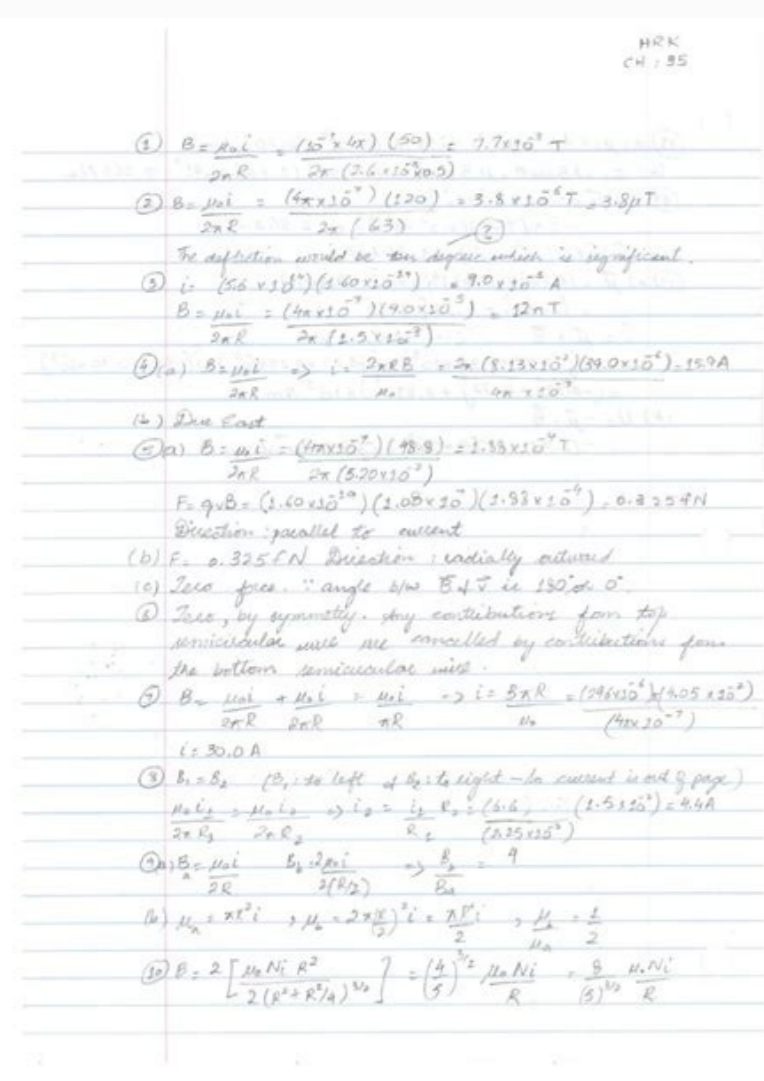 HRK
CH : 35
① B = μ₀i / 2πR = (10⁻⁷ × 4π) (50) / 2π (2.6 × 10⁻³ × 0.5) = 7.7 × 10⁻³ T
② B = μ₀i / 2πR = (4π × 10⁻⁷) (120) / 2π (6.3) = 3.8 × 10⁻⁶ T = 3.8 μT
The deflection would be degree which is significant. ?
③ i = (5.6 × 10¹⁴) (1.60 × 10⁻¹⁹) = 9.0 × 10⁻⁵ A
B = μ₀i / 2πR = (4π × 10⁻⁷) (9.0 × 10⁻⁵) / 2π (1.5 × 10⁻³) = 12 nT
④ (a) B = μ₀i / 2πR => i = 2πRB / μ₀ = 2π (8.13 × 10⁻²) (39.0 × 10⁻⁶) / 4π × 10⁻⁷ = 15.9 A
(b) Due East
⑤ a) B = μ₀i / 2πR = (4π × 10⁻⁷) (48.8) / 2π (5.20 × 10⁻²) = 1.88 × 10⁻⁴ T
F = qvB = (1.60 × 10⁻¹⁹) (1.08 × 10⁷) (1.88 × 10⁻⁴) = 0.325 fN
Direction : parallel to current
(b) F = 0.325 fN Direction : radially outward
(c) Zero force. ∵ angle b/w B & V is 180° or 0°.
⑥ Zero, by symmetry. Any contributions from top
semicircular wire are cancelled by contributions from
the bottom semicircular wire.
⑦ B = μ₀i / 2πR + μ₀i / 2πR = μ₀i / πR -> i = BπR / μ₀ = (296 × 10⁻⁶) π (4.05 × 10⁻²) / (4π × 10⁻⁷)
i = 30.0 A
⑧ B₁ = B₂ (B₁ : to left & B₂ : to right - So current is out of page)
μ₀i₁ / 2πR₁ = μ₀i₂ / 2πR₂ => i₂ = i₁ / R₁ R₂ = (6.6) / (2.25 × 10⁻²) (1.5 × 10⁻²) = 4.4 A
⑨ a) Bₐ = μ₀i / 2R B_b = 2μ₀i / 2(R/2) => B_b / Bₐ = 4
(b) μₐ = πR²i , μ_b = 2π(R/2)²i = πR²i / 2 , μ_b / μₐ = 1/2
⑩ B = 2 [ μ₀Ni R² / 2(R² + R²/4)^3/2 ] = (4/5)^3/2 μ₀Ni / R = 8 / (5)^3/2 μ₀Ni / R